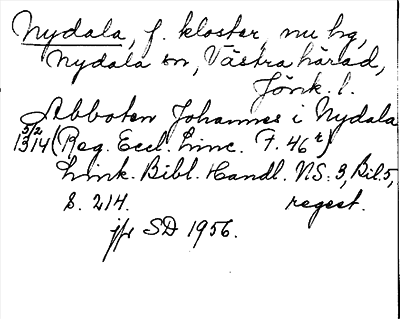 Nydala, f. kloster, nu hg,
Nydala sn, Västra härad,
Jönk. l.
Abboten Johannes i Nydala
5/2 1314 (Reg. Eccl. Linc. F. 46r)
Link. Bibl. Handl. NS. 3, Bil. 5,
S. 214. regest.
jfr SD 1956.